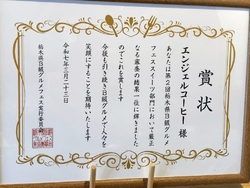 賞状
エンジェルコーヒー 様
あなたは第2回栃木県日暖グルメ
フェススイーツ部門において厳正
なる審査の結果一位に輝きました
のでこれを賞します
今後も引き続き日暖グルメで人々を
笑顔にすることを期待いたします
令和七年三月二十三日
栃木県日暖グルメフェス実行委員